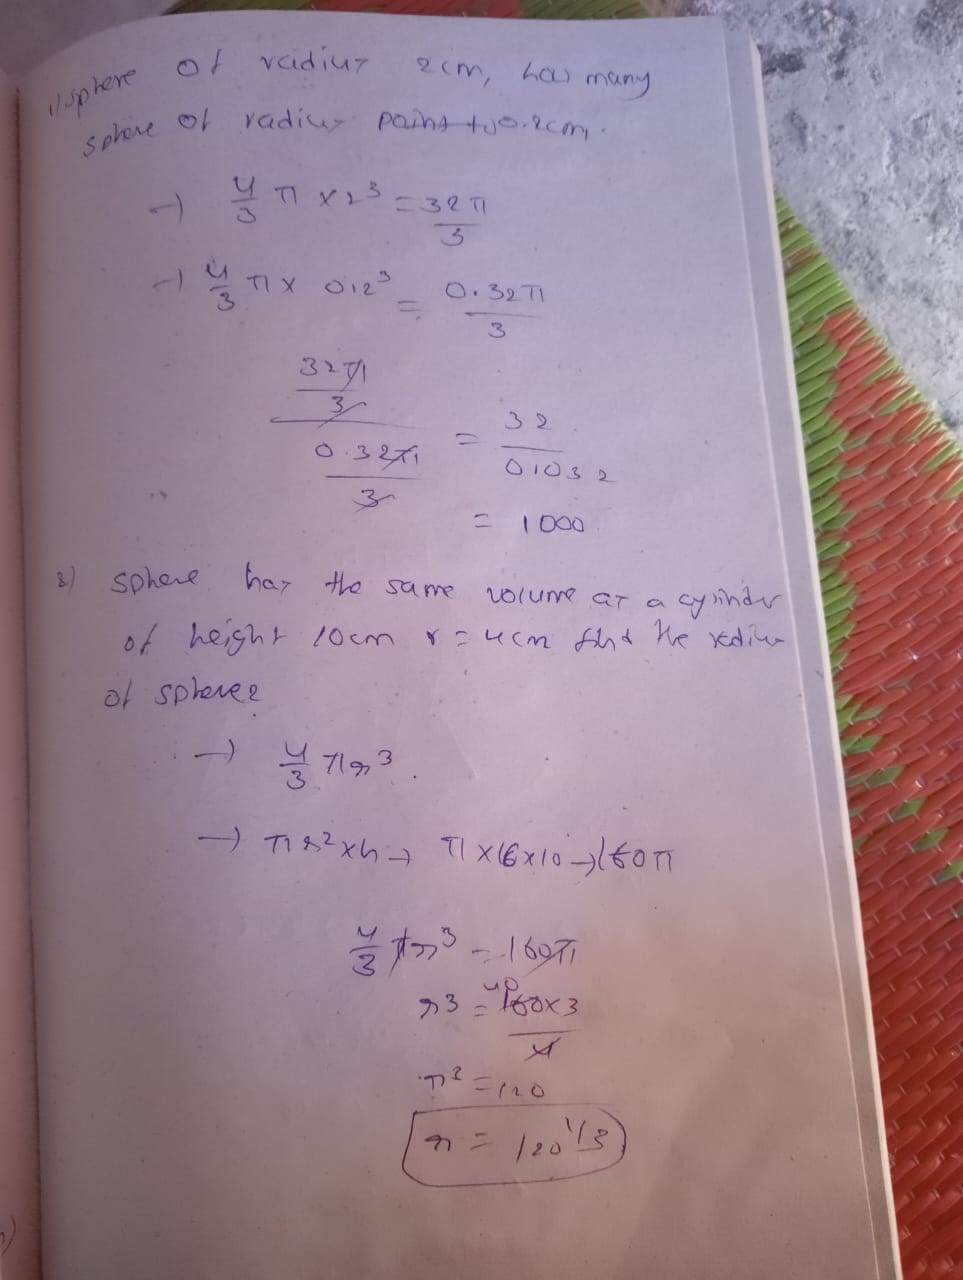 1) sphere of radius 2cm, how many
sphere of radius 0.2cm.
→ 4/3 π × 2³ = 32π/3
→ 4/3 π × 0.2³ = 0.32π/3
32π/3 / 0.32π/3 = 32/0.032
= 1000
2) sphere has the same volume as a cylinder
of height 10cm r = 4cm find the radius
of sphere?
→ 4/3 πr³.
→ πr²×h → π×16×10 → 160π
4/3 πr³ = 160π
r³ = 40 160×3/4
r³ = 120
r = 120^1/3